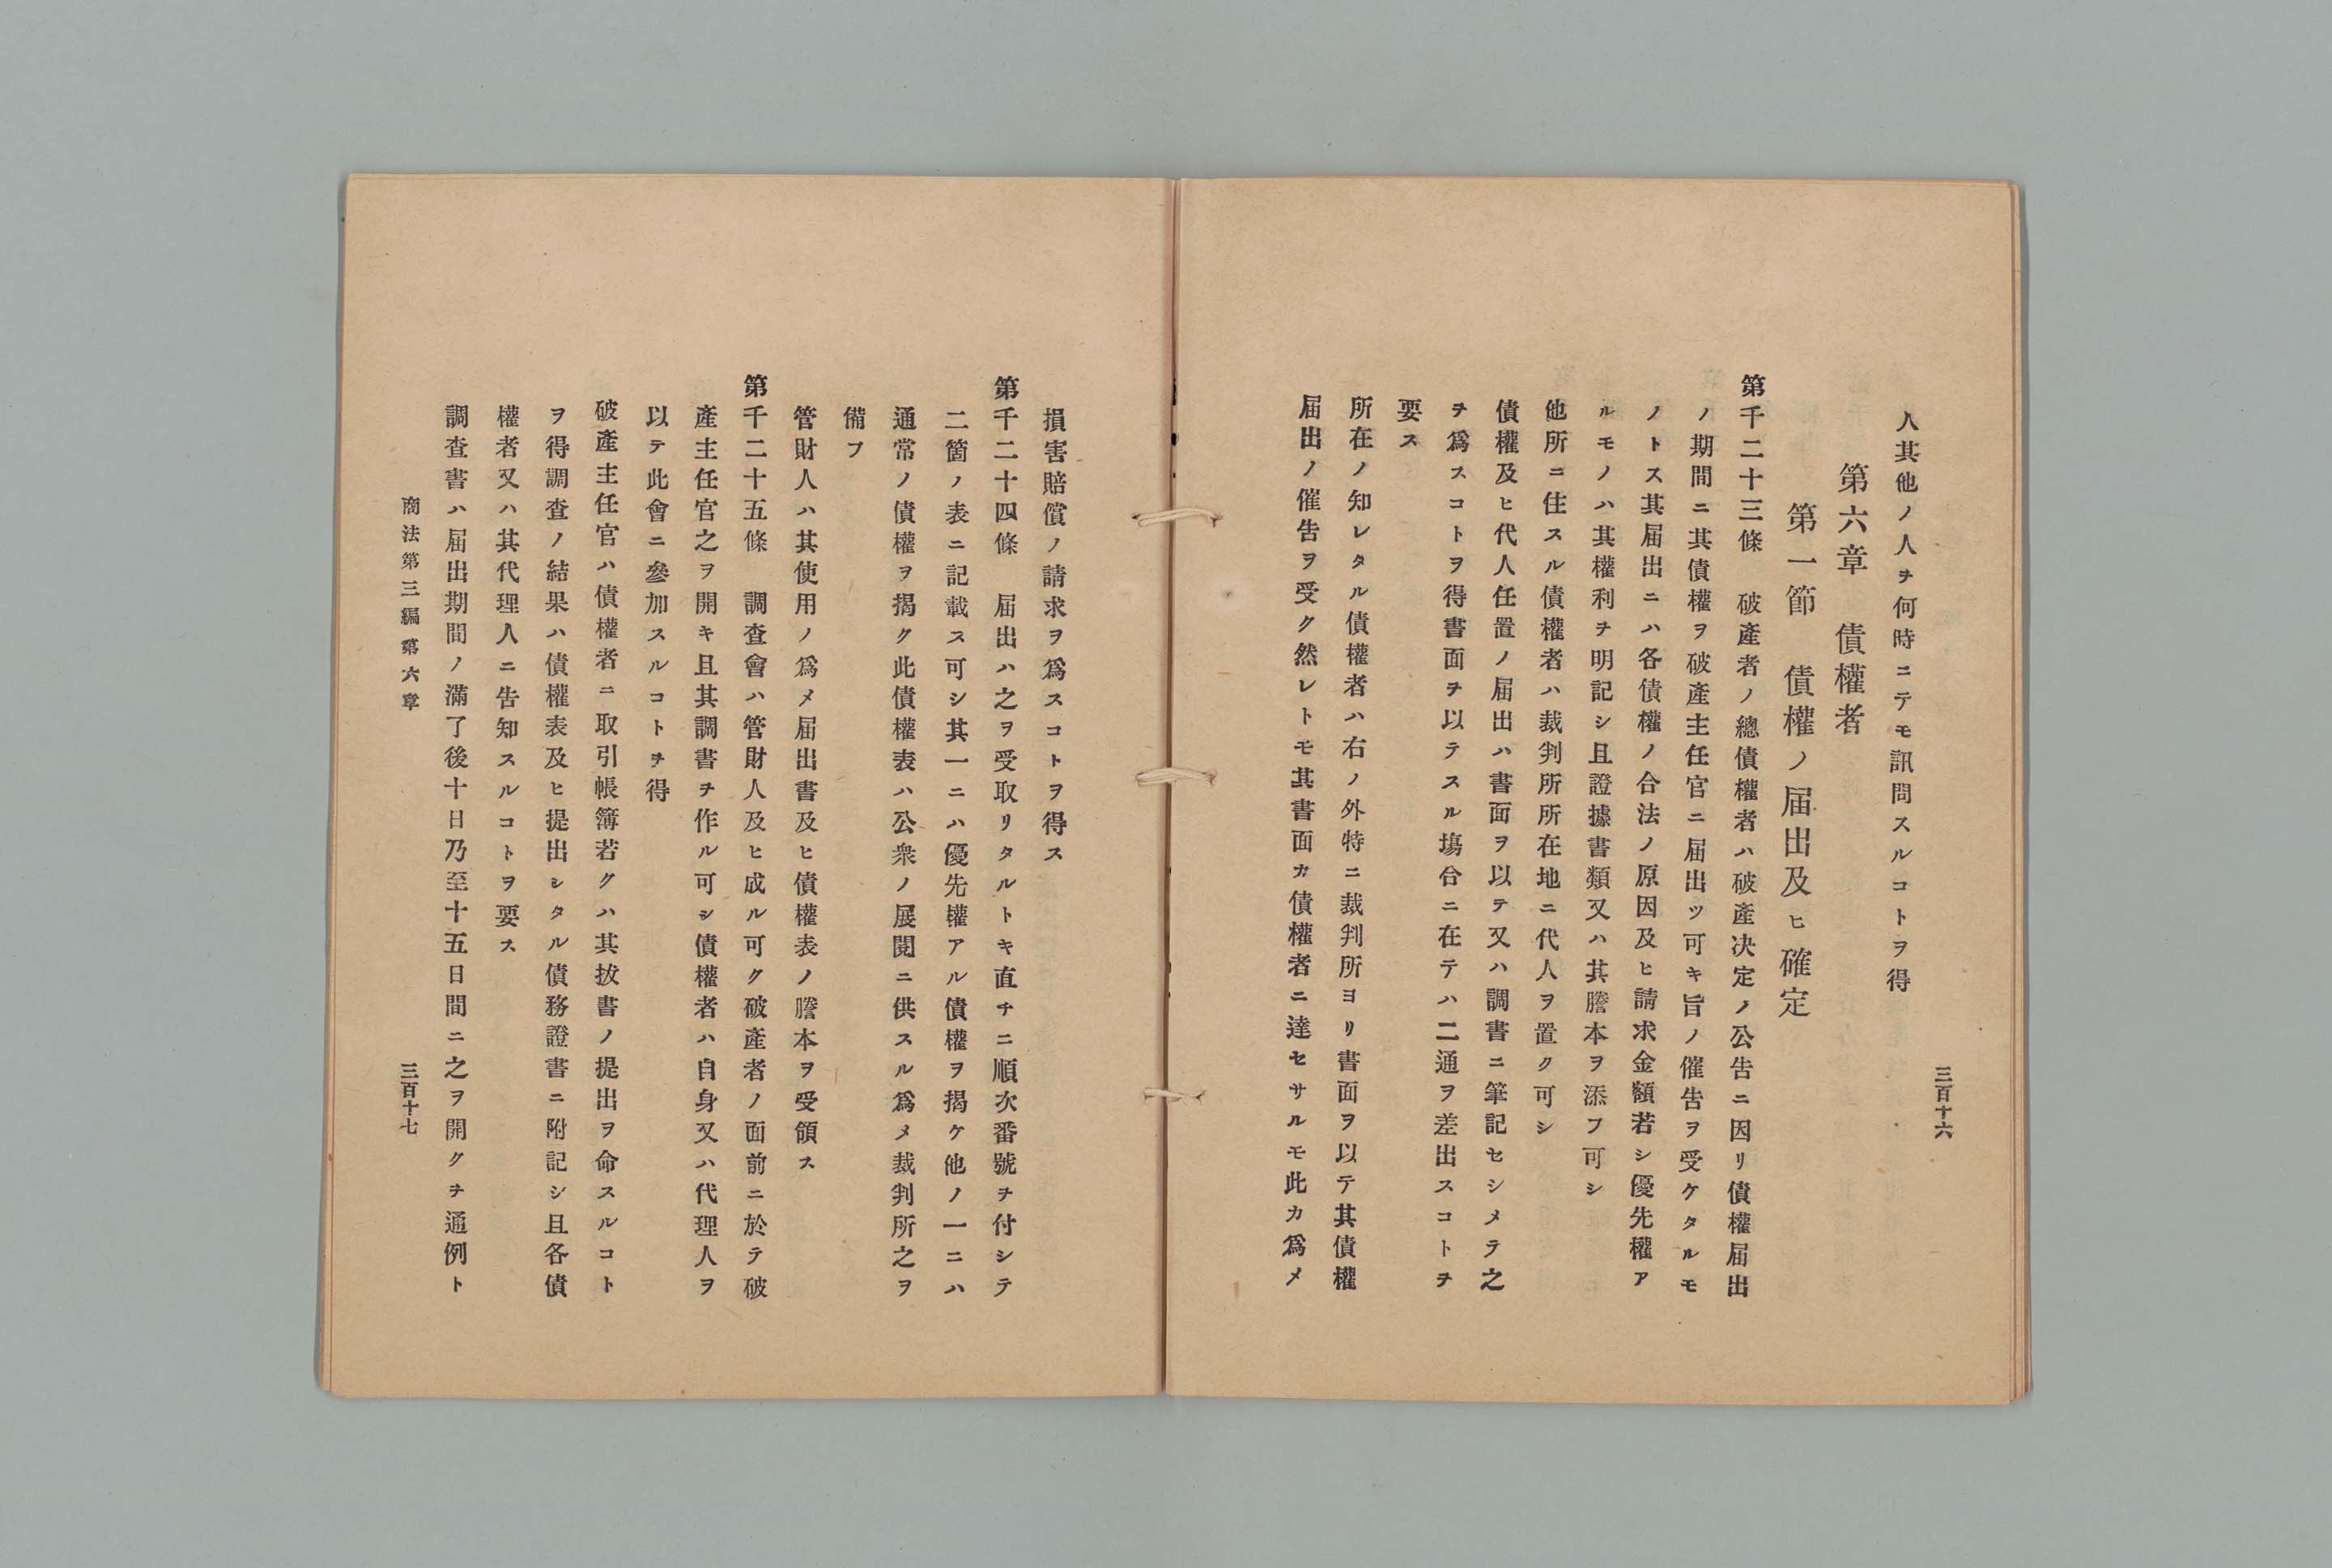 三百十六
人其他ノ人ヲ何時ニテモ訊問スルコトヲ得
第六章　債權者
第一節　債權ノ届出及ヒ確定
第千二十三條　破產者ノ總債權者ハ破產决定ノ公告ニ因リ債權届出
ノ期間ニ其債權ヲ破產主任官ニ届出ツ可キ旨ノ催告ヲ受ケタルモ
ノトス其届出ニハ各債權ノ合法ノ原因及ヒ請求金額若シ優先權ア
ルモノハ其權利ヲ明記シ且證據書類又ハ其謄本ヲ添フ可シ
他所ニ住スル債權者ハ裁判所所在地ニ代人ヲ置ク可シ
債權及ヒ代人任置ノ届出ハ書面ヲ以テ又ハ調書ニ筆記セシメテ之
ヲ爲スコトヲ得書面ヲ以テスル塲合ニ在テハ二通ヲ差出スコトヲ
要ス
所在ノ知レタル債權者ハ右ノ外特ニ裁判所ヨリ書面ヲ以テ其債權
届出ノ催告ヲ受ク然レトモ其書面カ債權者ニ達セサルモ此カ爲メ
損害賠償ノ請求ヲ爲スコトヲ得ス
第千二十四條　届出ハ之ヲ受取リタルトキ直チニ順次番號ヲ付シテ
二箇ノ表ニ記載ス可シ其一ニハ優先權アル債權ヲ揭ケ他ノ一ニハ
通常ノ債權ヲ揭ク此債權表ハ公衆ノ展閱ニ供スル爲メ裁判所之ヲ
備フ
管財人ハ其使用ノ爲メ届出書及ヒ債權表ノ謄本ヲ受領ス
第千二十五條　調查會ハ管財人及ヒ成ル可ク破產者ノ面前ニ於テ破
產主任官之ヲ開キ且其調書ヲ作ル可シ債權者ハ自身又ハ代理人ヲ
以テ此會ニ參加スルコトヲ得
破產主任官ハ債權者ニ取引帳簿若クハ其拔書ノ提出ヲ命スルコト
ヲ得調查ノ結果ハ債權表及ヒ提出シタル債務證書ニ附記シ且各債
權者又ハ其代理人ニ告知スルコトヲ要ス
調查書ハ届出期間ノ滿了後十日乃至十五日間ニ之ヲ開クヲ通例ト
商法第三編第六章
三百十七